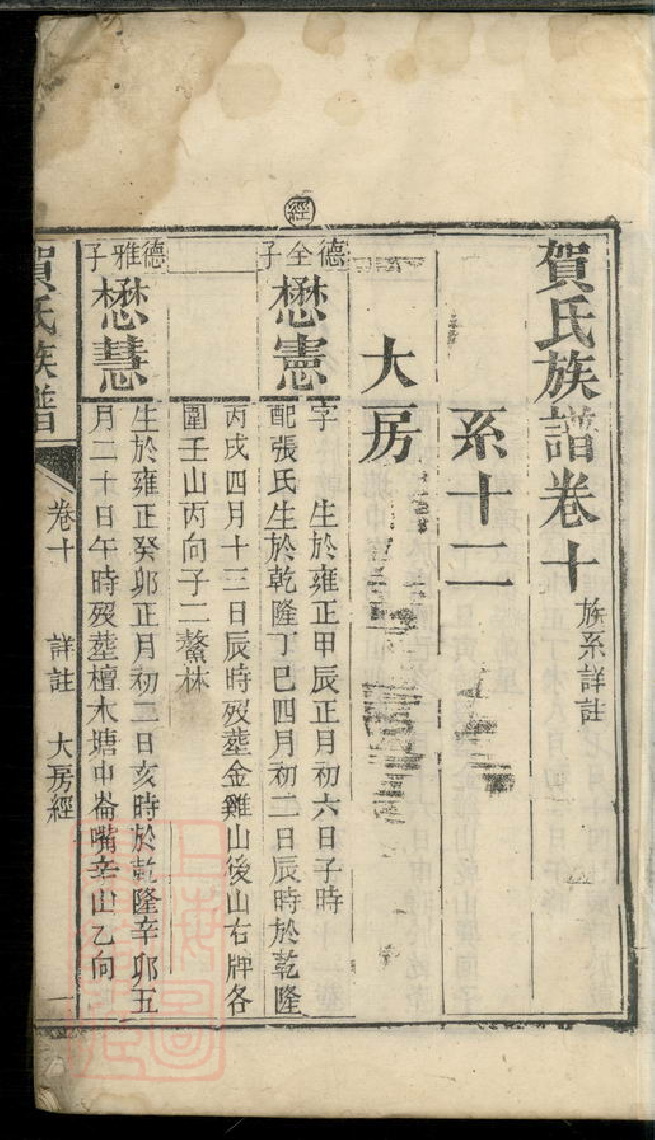 經
賀氏族譜卷十
族系詳註
系十二
大房
德全子
懋憲
字 生於雍正甲辰正月初六日子時
配張氏生於乾隆丁巳四月初二日辰時於乾隆
丙戌四月十三日辰時歿葬金雞山後山右牌各
圍壬山丙向子二鰲林
德雅子
懋慧
生於雍正癸卯正月初二日亥時於乾隆辛卯五
月二十日午時歿葬檀木塘中崙嘴辛山乙向
賀氏族譜
卷十 詳註 大房經 一